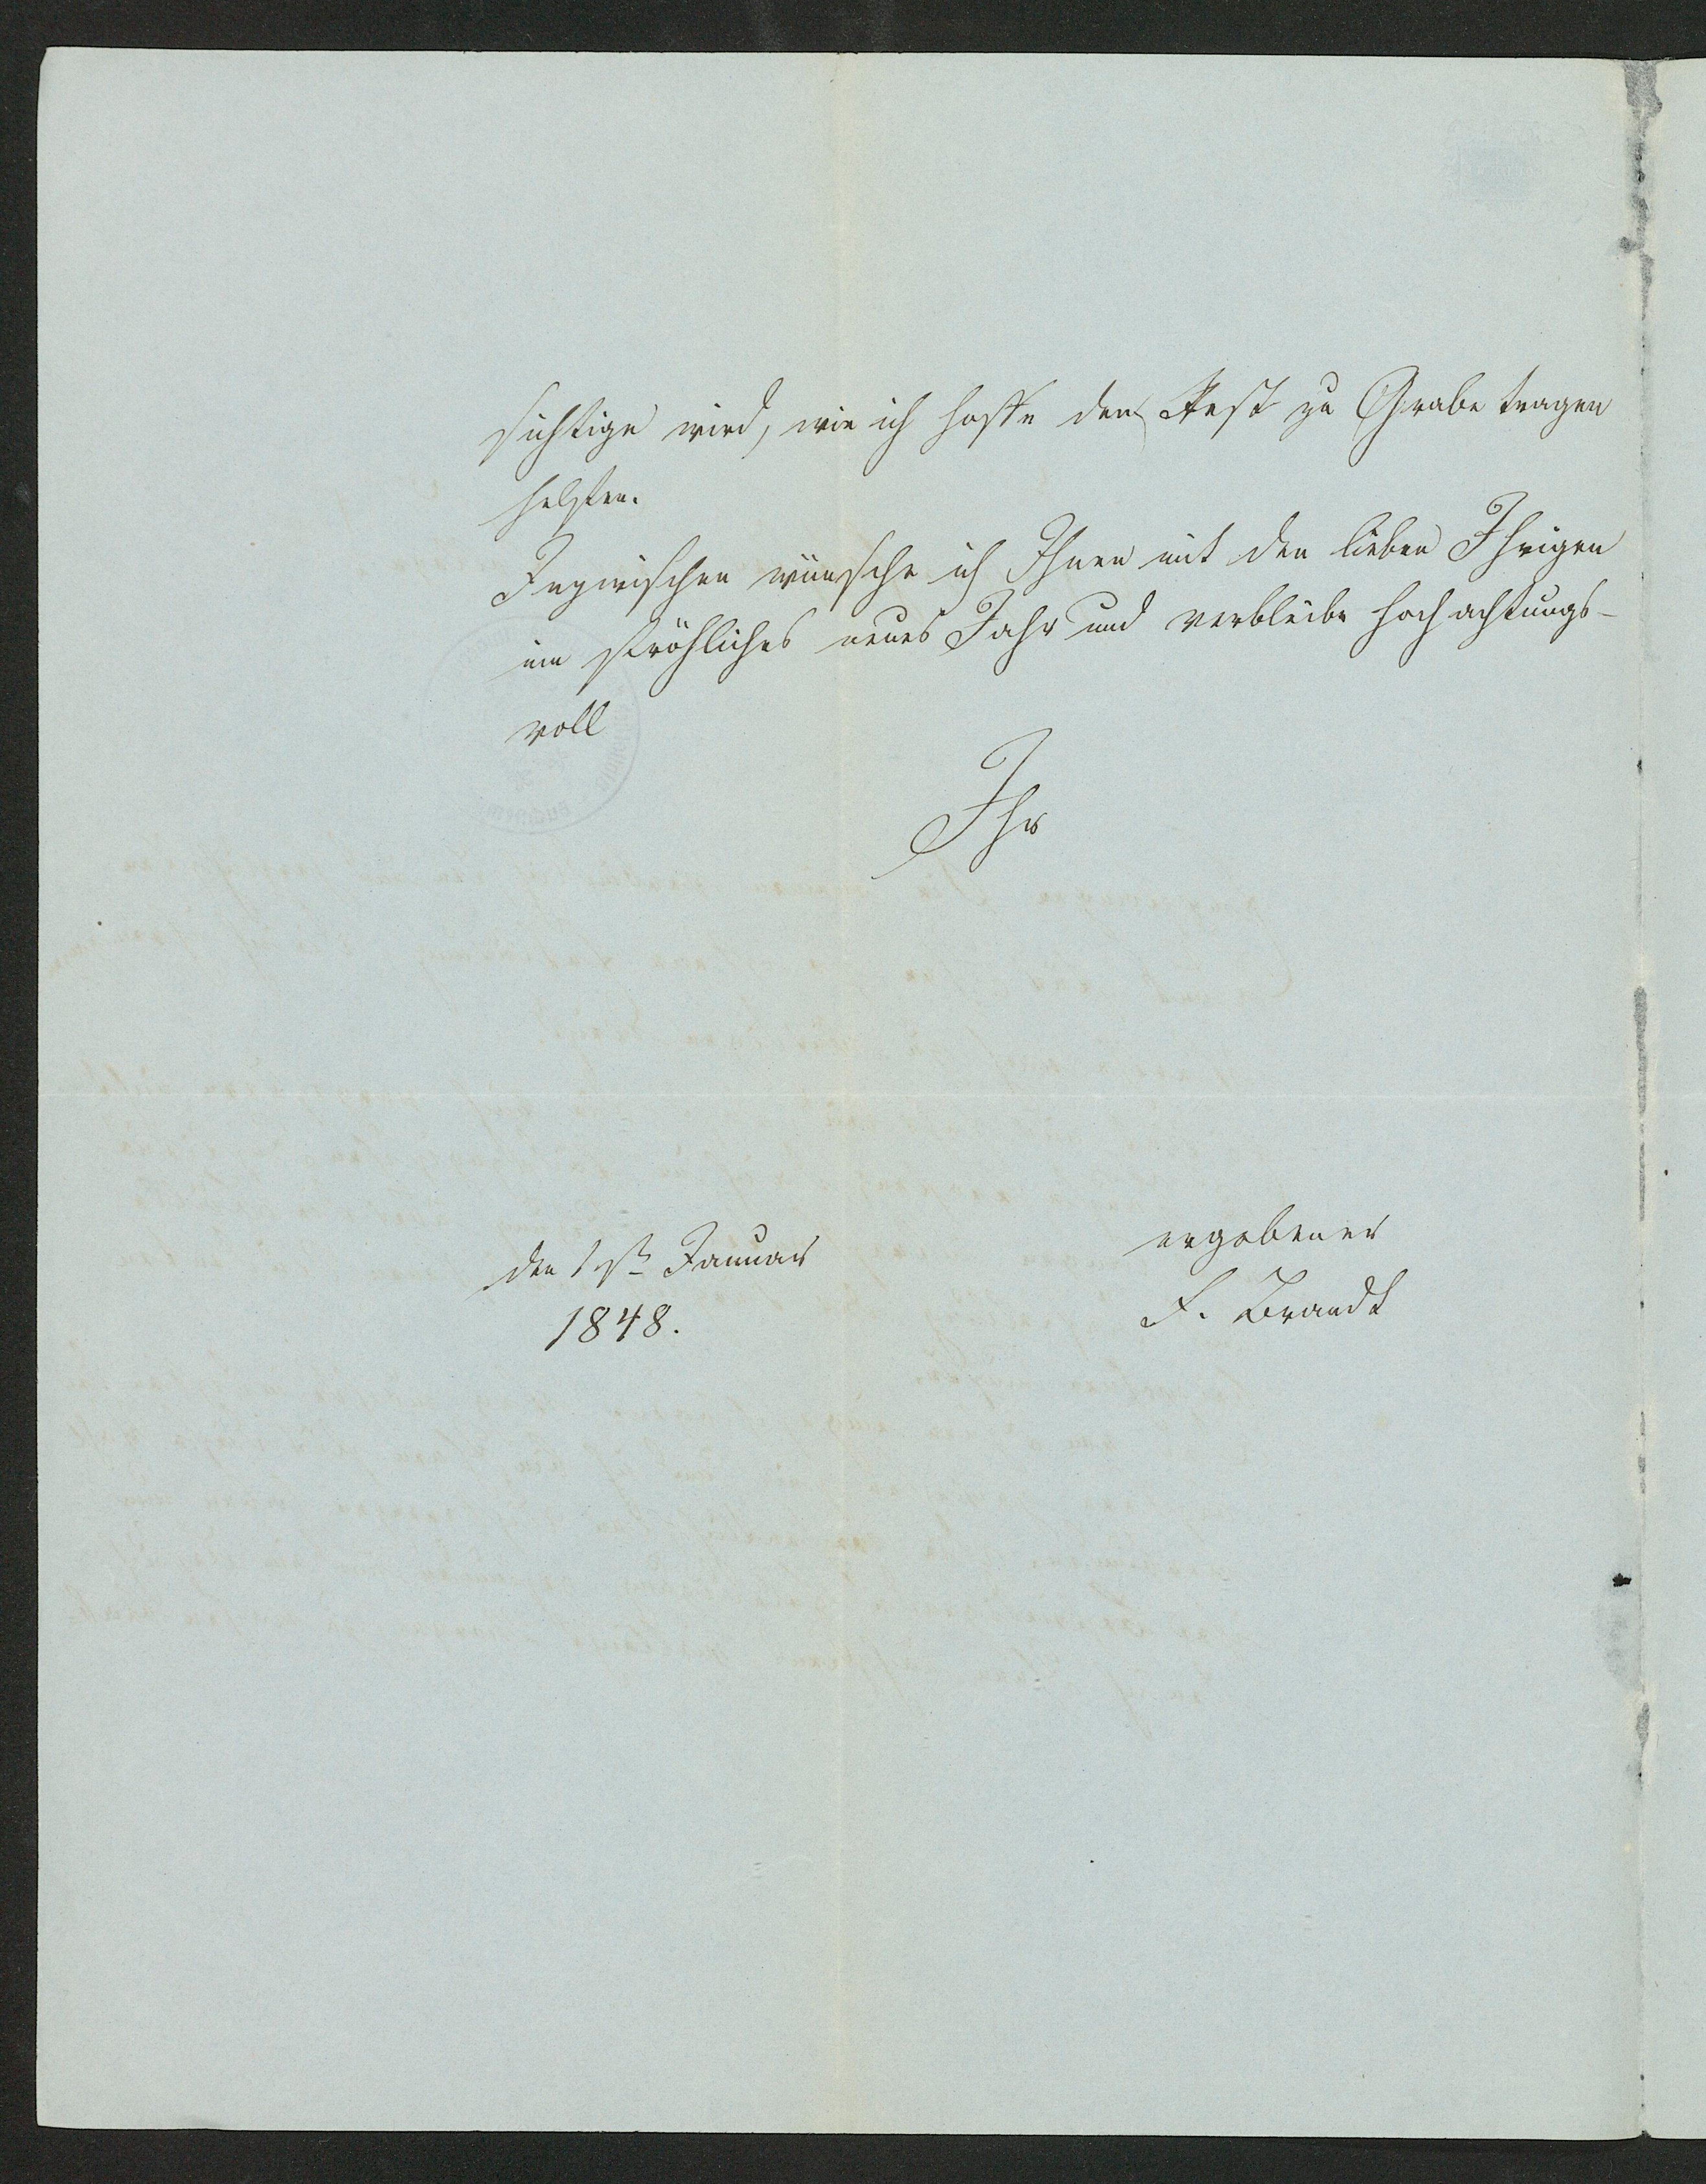 sichtige wird, wie ich hoffe den Rest zu Grabe tragen
helfen.
Inzwischen wünsche ich Ihnen mit den lieben Ihrigen
ein fröhliches neues Jahr und verbleibe hochachtungs-
voll
Ihr
ergebener
F. Brandt
den 1st Januar
1848.